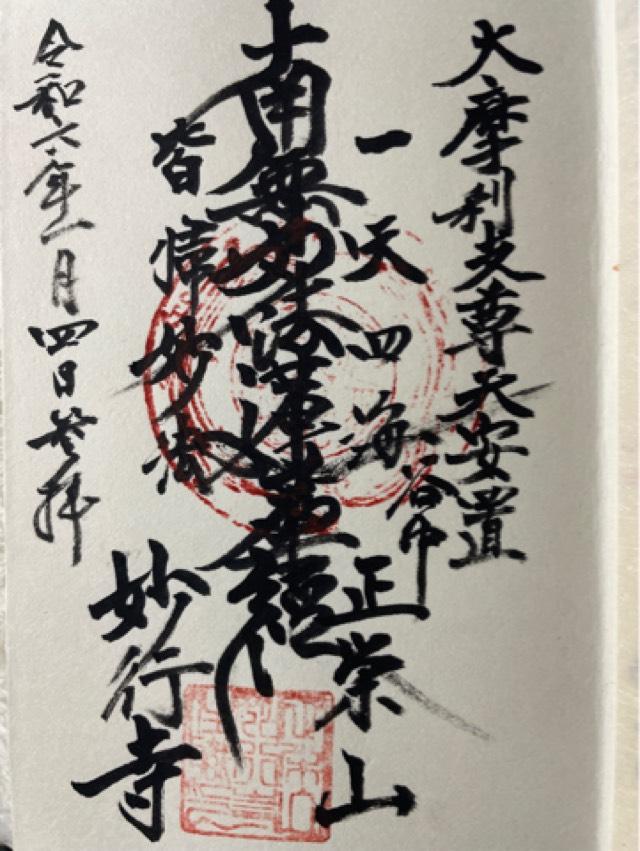 大摩利支尊天安置
一天四海
谷中
正栄山
南無妙法蓮華經
皆帰妙法
妙行寺
令和六年一月四日参拝